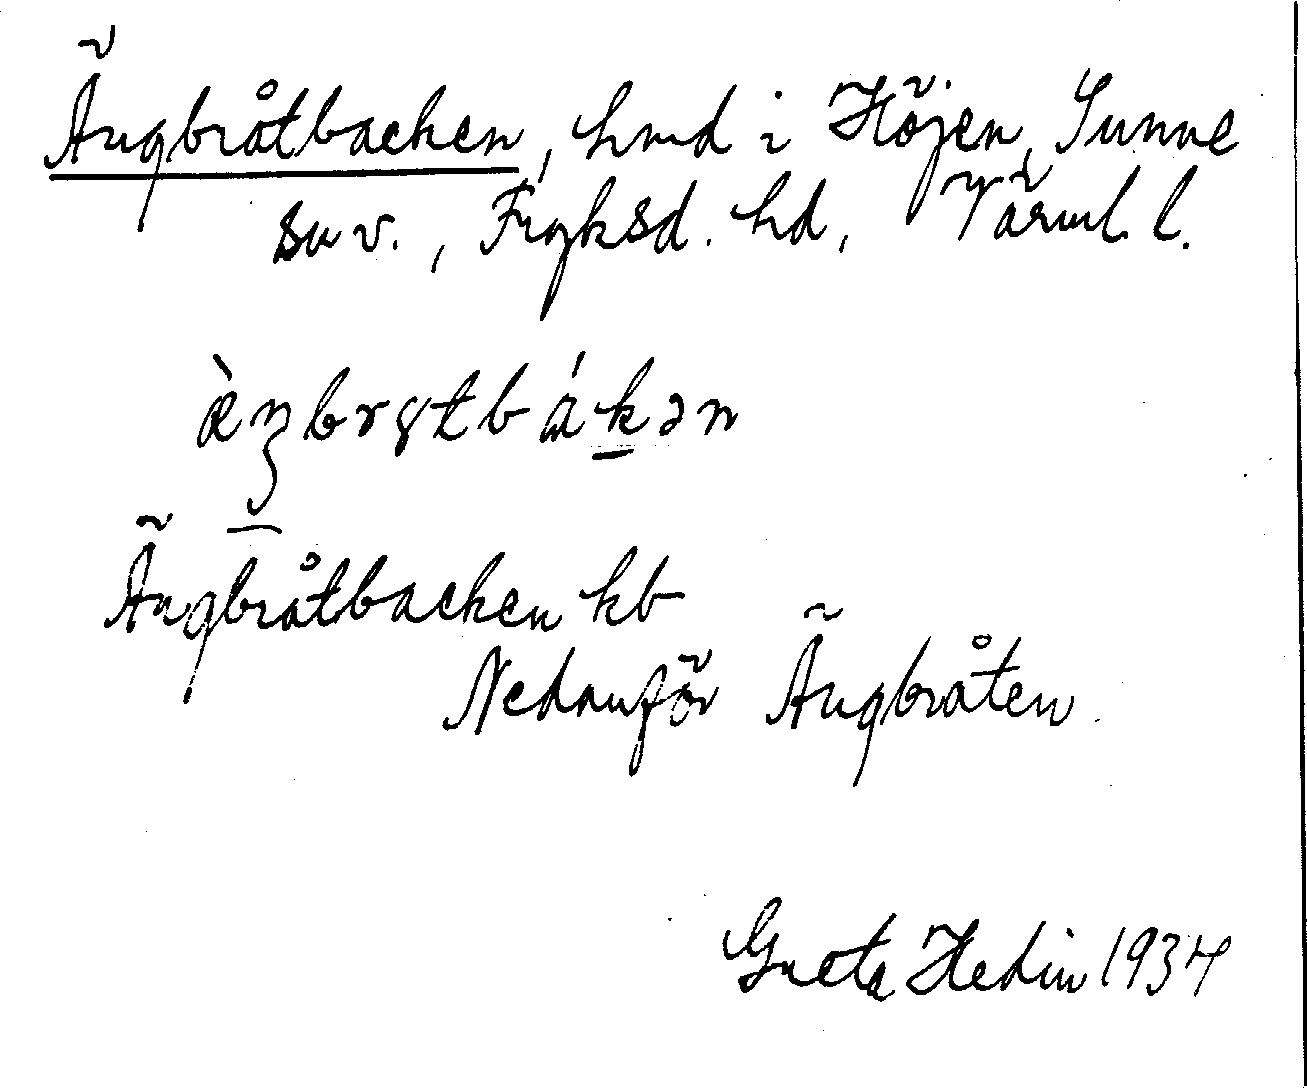 Ängbråtbacken, hmd i Höjen, Sunne
sn v., Fryksd. hd, Värml. l.
Ängbråtbacken kb
Nedanför Ängbråten
Greta Hedin 1934